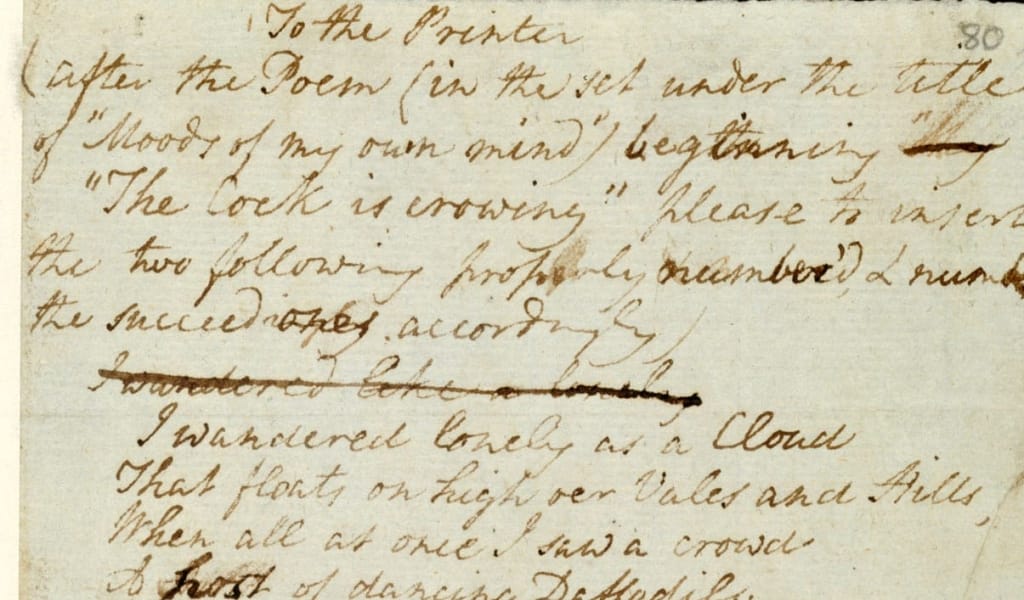 To the Printer
80
(after the Poem (in the set under the title
of "Moods of my own mind") beginning
"The Cock is crowing" please to insert
the two following properly number'd, & numb
the succeeding accordingly)
I wandered like a lonely
I wandered lonely as a Cloud
That floats on high oer Vales and Hills,
When all at once I saw a crowd
A host of dancing Daffodils